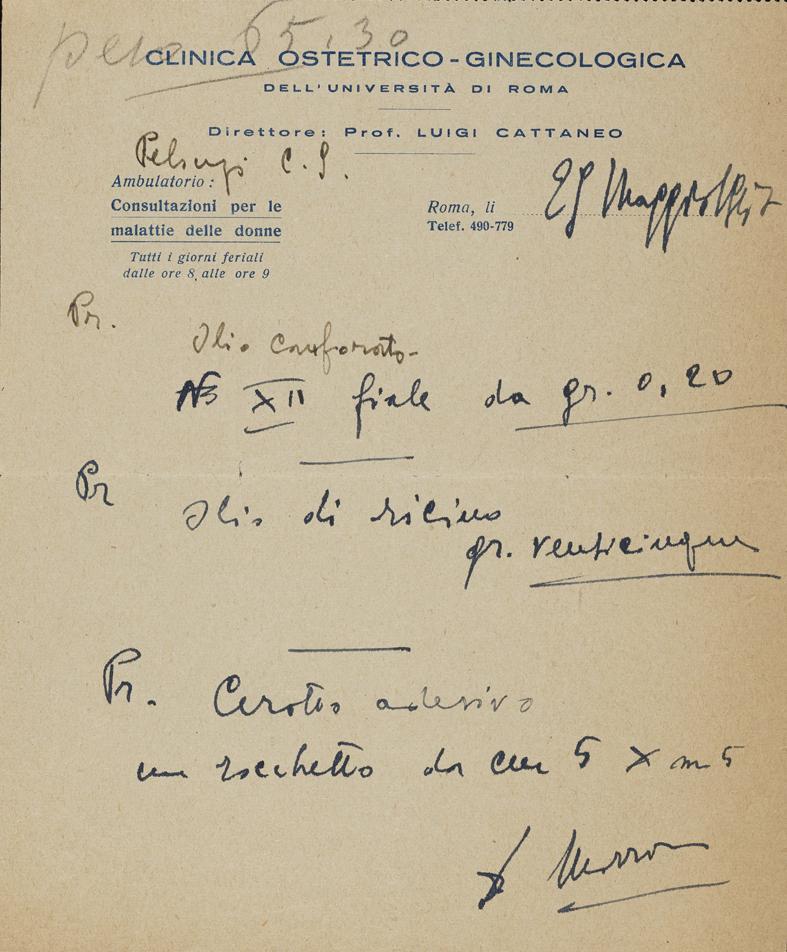 peso 65,30
CLINICA OSTETRICO-GINECOLOGICA
DELL'UNIVERSITÀ DI ROMA
Direttore: Prof. LUIGI CATTANEO
C. S.
Ambulatorio:
Consultazioni per le
malattie delle donne
Tutti i giorni feriali
dalle ore 8, alle ore 9
Roma, li Maggio
Telef. 490-779
Pr.
Olio canforato
N XII fiale da gr. 0,20
Pr
Olio di ricino
gr. venticinque
Pr. Cerotto adesivo
un rocchetto da cm 5 X m 5